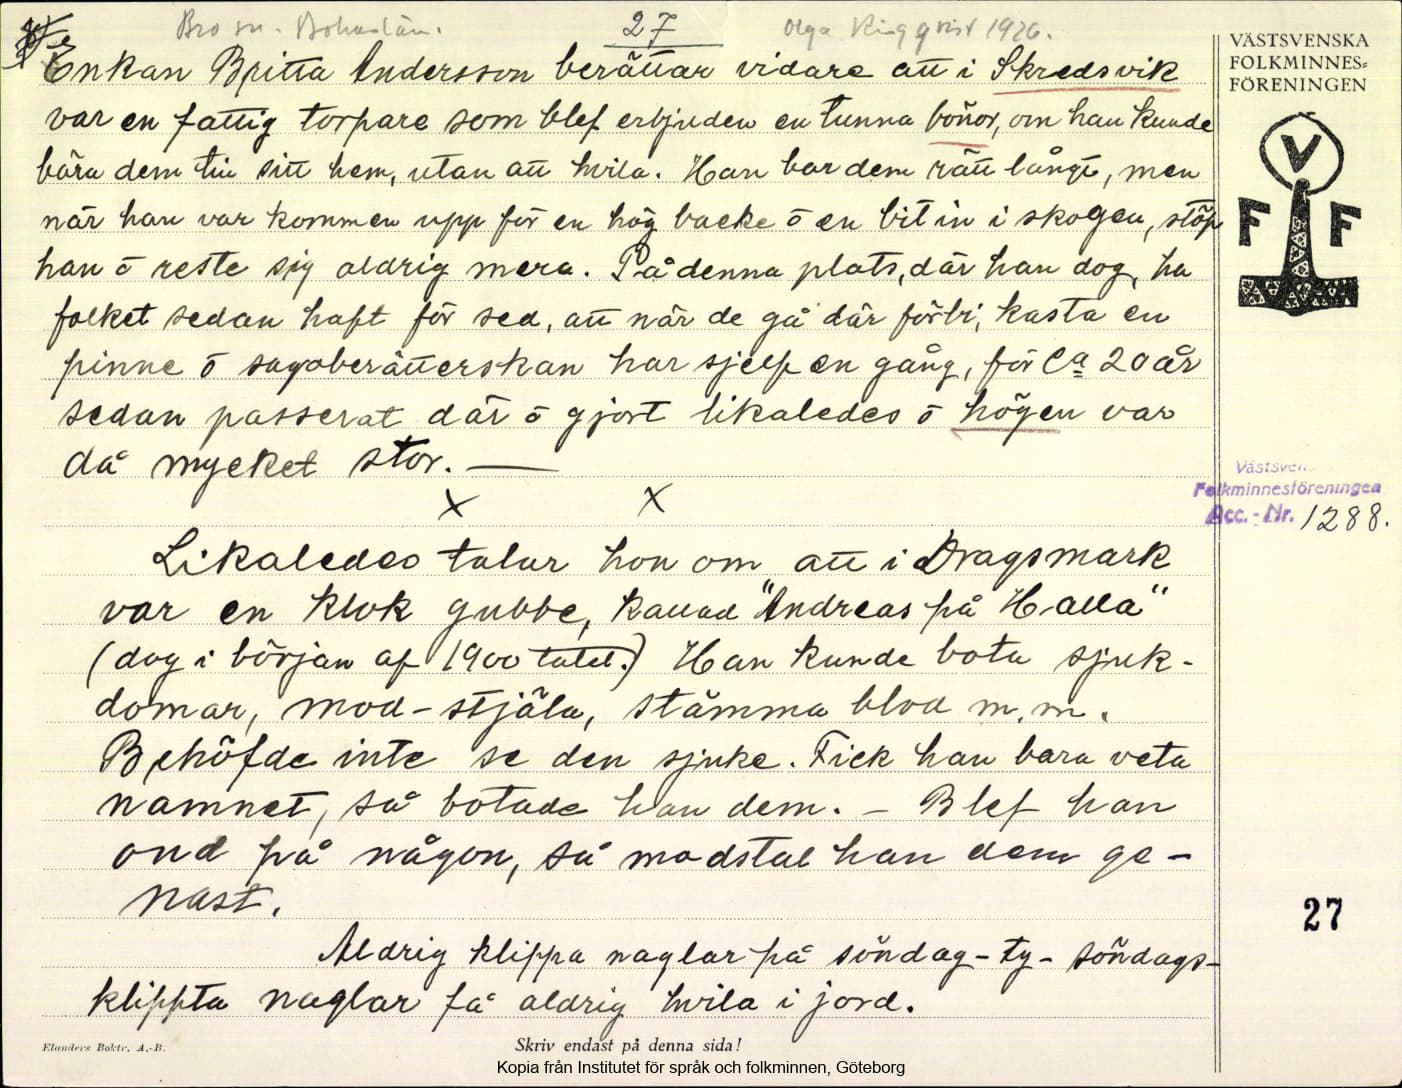 Bro sn. Bohuslän.
27
Olga Ringqvist 1926.
Enkan Britta Andersson berättar vidare att i Skredsvik
var en fattig torpare som blef erbjuden en tunna bönor, om han kunde
bära dem till sitt hem, utan att hvila. Han bar dem rätt långt, men
när han var kommen upp för en hög backe ō en bit in i skogen, stöp
han ō reste sig aldrig mera. På denna plats, där han dog, ha
folket sedan haft för sed, att när de gå där förbi, kasta en
pinne ō sagoberätterskan har sjelf en gång, för Ca 20 år
sedan passerat där ō gjort likaledes ō högen var
då mycket stor. —
x x
Likaledes talar hon om att i Dragsmark
var en klok gubbe, kallad "Andreas på Halla"
(dog i början af 1900 talet.) Han kunde bota sjuk-
domar, mod-stjäla, stämma blod m.m.
Behöfde inte se den sjuke. Fick han bara veta
namnet, så botade han dem. - Blef han
ond på någon, så modstal han dem ge-
nast.
Aldrig klippa naglar på söndag - ty - söndags-
klippta naglar få aldrig hvila i jord.
Elanders Boktr. A.-B.
Skriv endast på denna sida!
Kopia från Institutet för språk och folkminnen, Göteborg
VÄSTSVENSKA
FOLKMINNES=
FÖRENINGEN
V
F F
Folkminnesföreningen
Acc.-Nr. 1288.
27